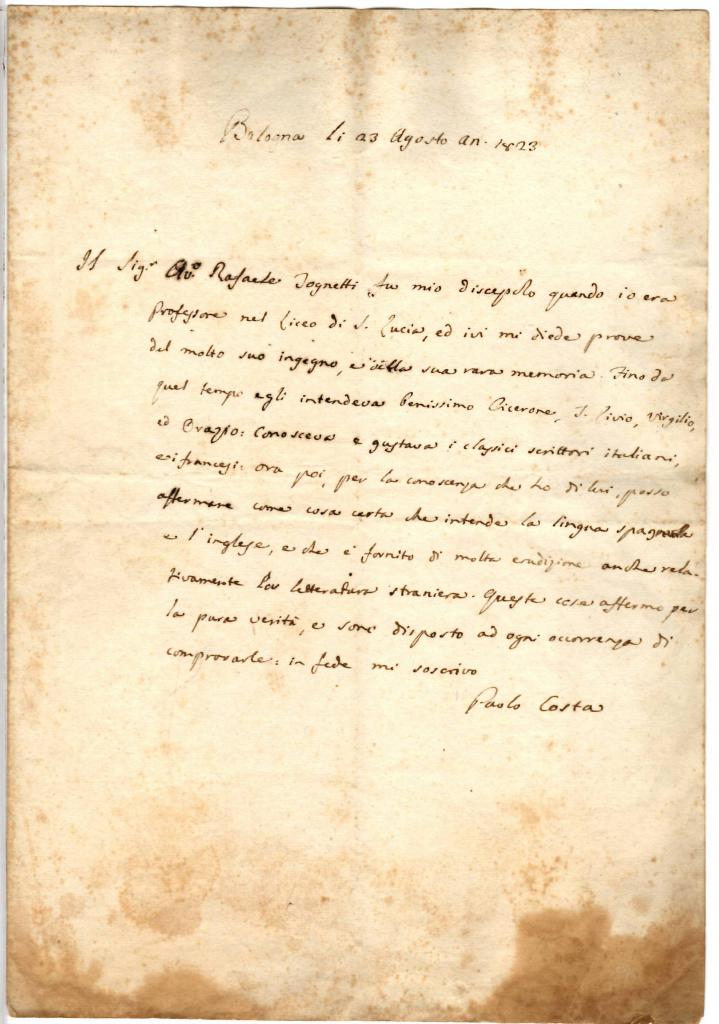 Bologna li 23 Agosto an. 1823
Il Sig.r Av.o Rafaele Tognetti fu mio discepolo quando io era
Professore nel Liceo di S. Lucia, ed ivi mi diede prove
del molto suo ingegno, e della sua rara memoria. Fino da
quel tempo egli intendeva benissimo Cicerone, T. Livio, Virgilio,
ed Orazio: conosceva e gustava i classici scrittori italiani,
e i francesi: ora poi, per la conoscenza che ho di lui, posso
affermare come cosa certa che intende la lingua spagnuola
e l'inglese, e che è fornito di molta erudizione anche rela-
tivamente letteratura straniera. Queste cose affermo per
la pura verità, e sono disposto ad ogni occorrenza di
comprovarle: in fede mi soscrivo
Paolo Costa